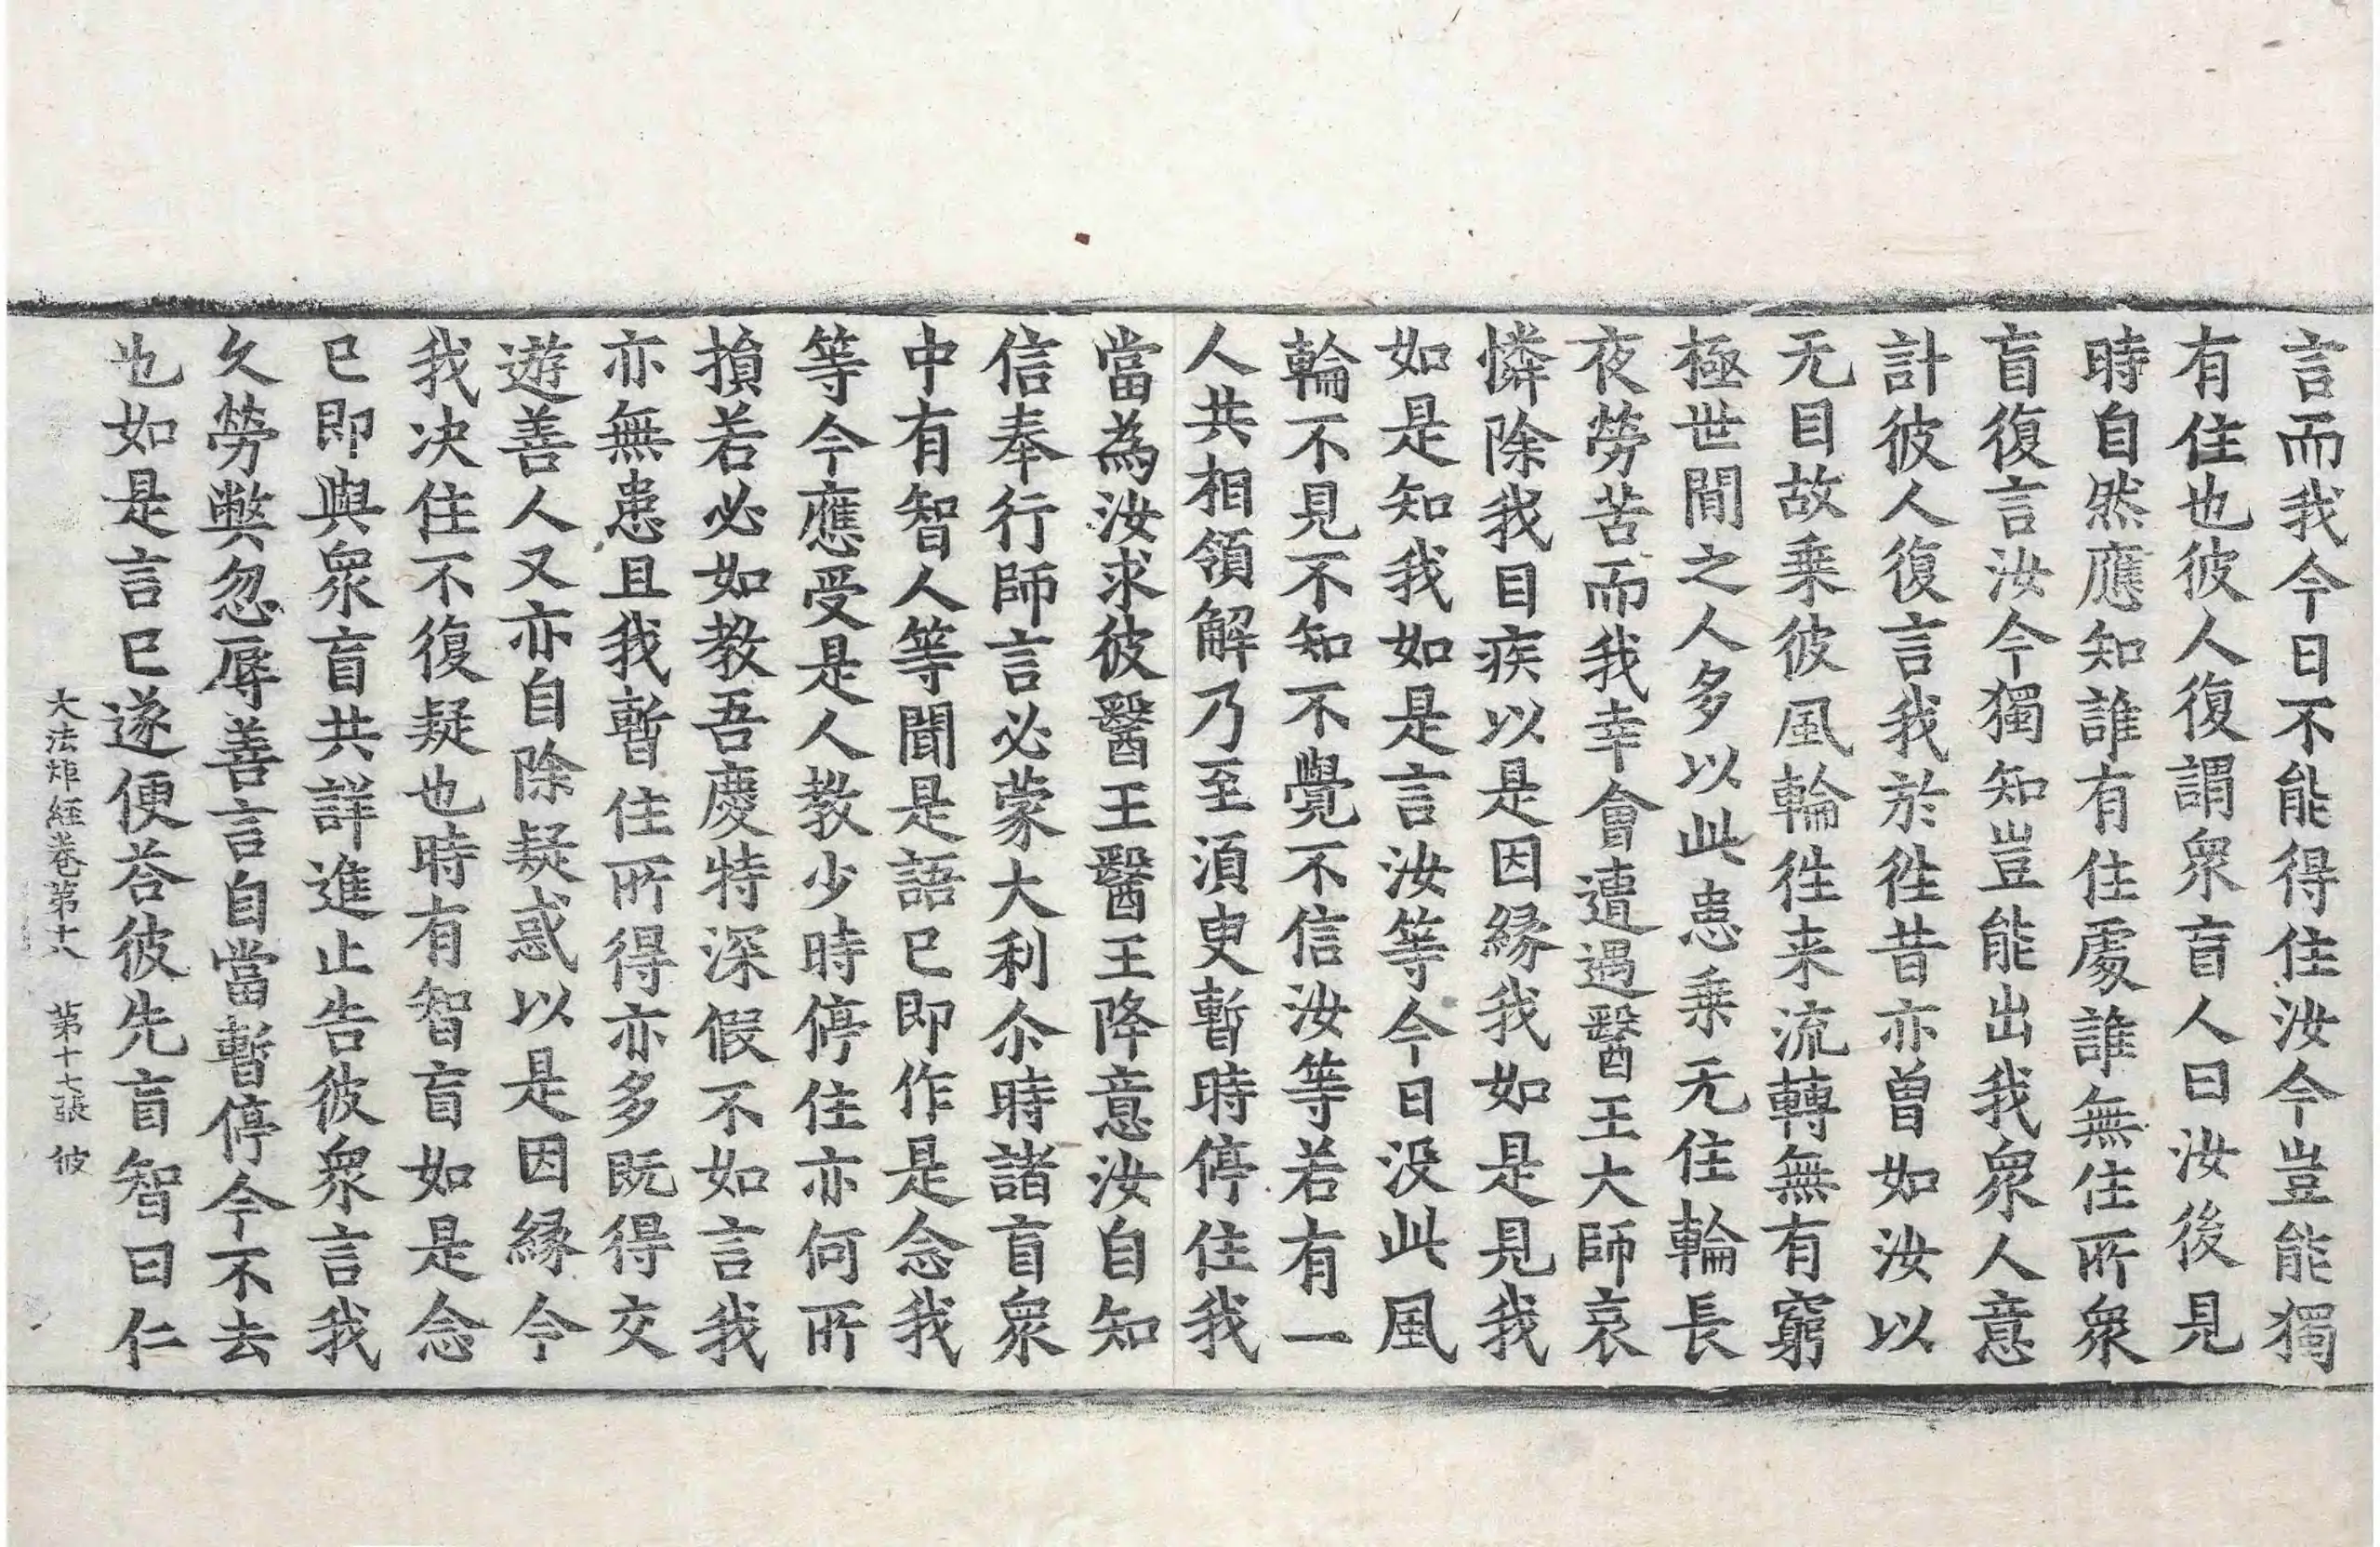 言而我今日不能得住汝今豈能獨
有住也彼人復謂衆盲人曰汝後見
時自然應知誰有住處誰無住所衆
盲復言汝今獨知豈能出我衆人意
計彼人復言我於徃昔亦曾如汝以
无目故乗彼風輪徃来流轉無有窮
極世間之人多以此患乗无住輪長
夜勞苦而我幸會遭遇醫王大師哀
憐除我目疾以是因縁我如是見我
如是知我如是言汝等今日没此風
輪不見不知不覺不信汝等若有一
人共相領解乃至湏臾暫時停住我
當為汝求彼醫王醫王降意汝自知
信奉行師言必蒙大利尒時諸盲衆
中有智人等聞是語已即作是念我
等今應受是人教少時停住亦何所
損若必如教吾慶特深假不如言我
亦無患且我暫住所得亦多既得交
遊善人又亦自除疑惑以是因縁今
我决住不復疑也時有智盲如是念
已即與衆盲共詳進止告彼衆言我
久勞弊忽辱善言自當暫停今不去
也如是言已遂便荅彼先盲智曰仁
大法炬經卷第十六　第十七張　彼